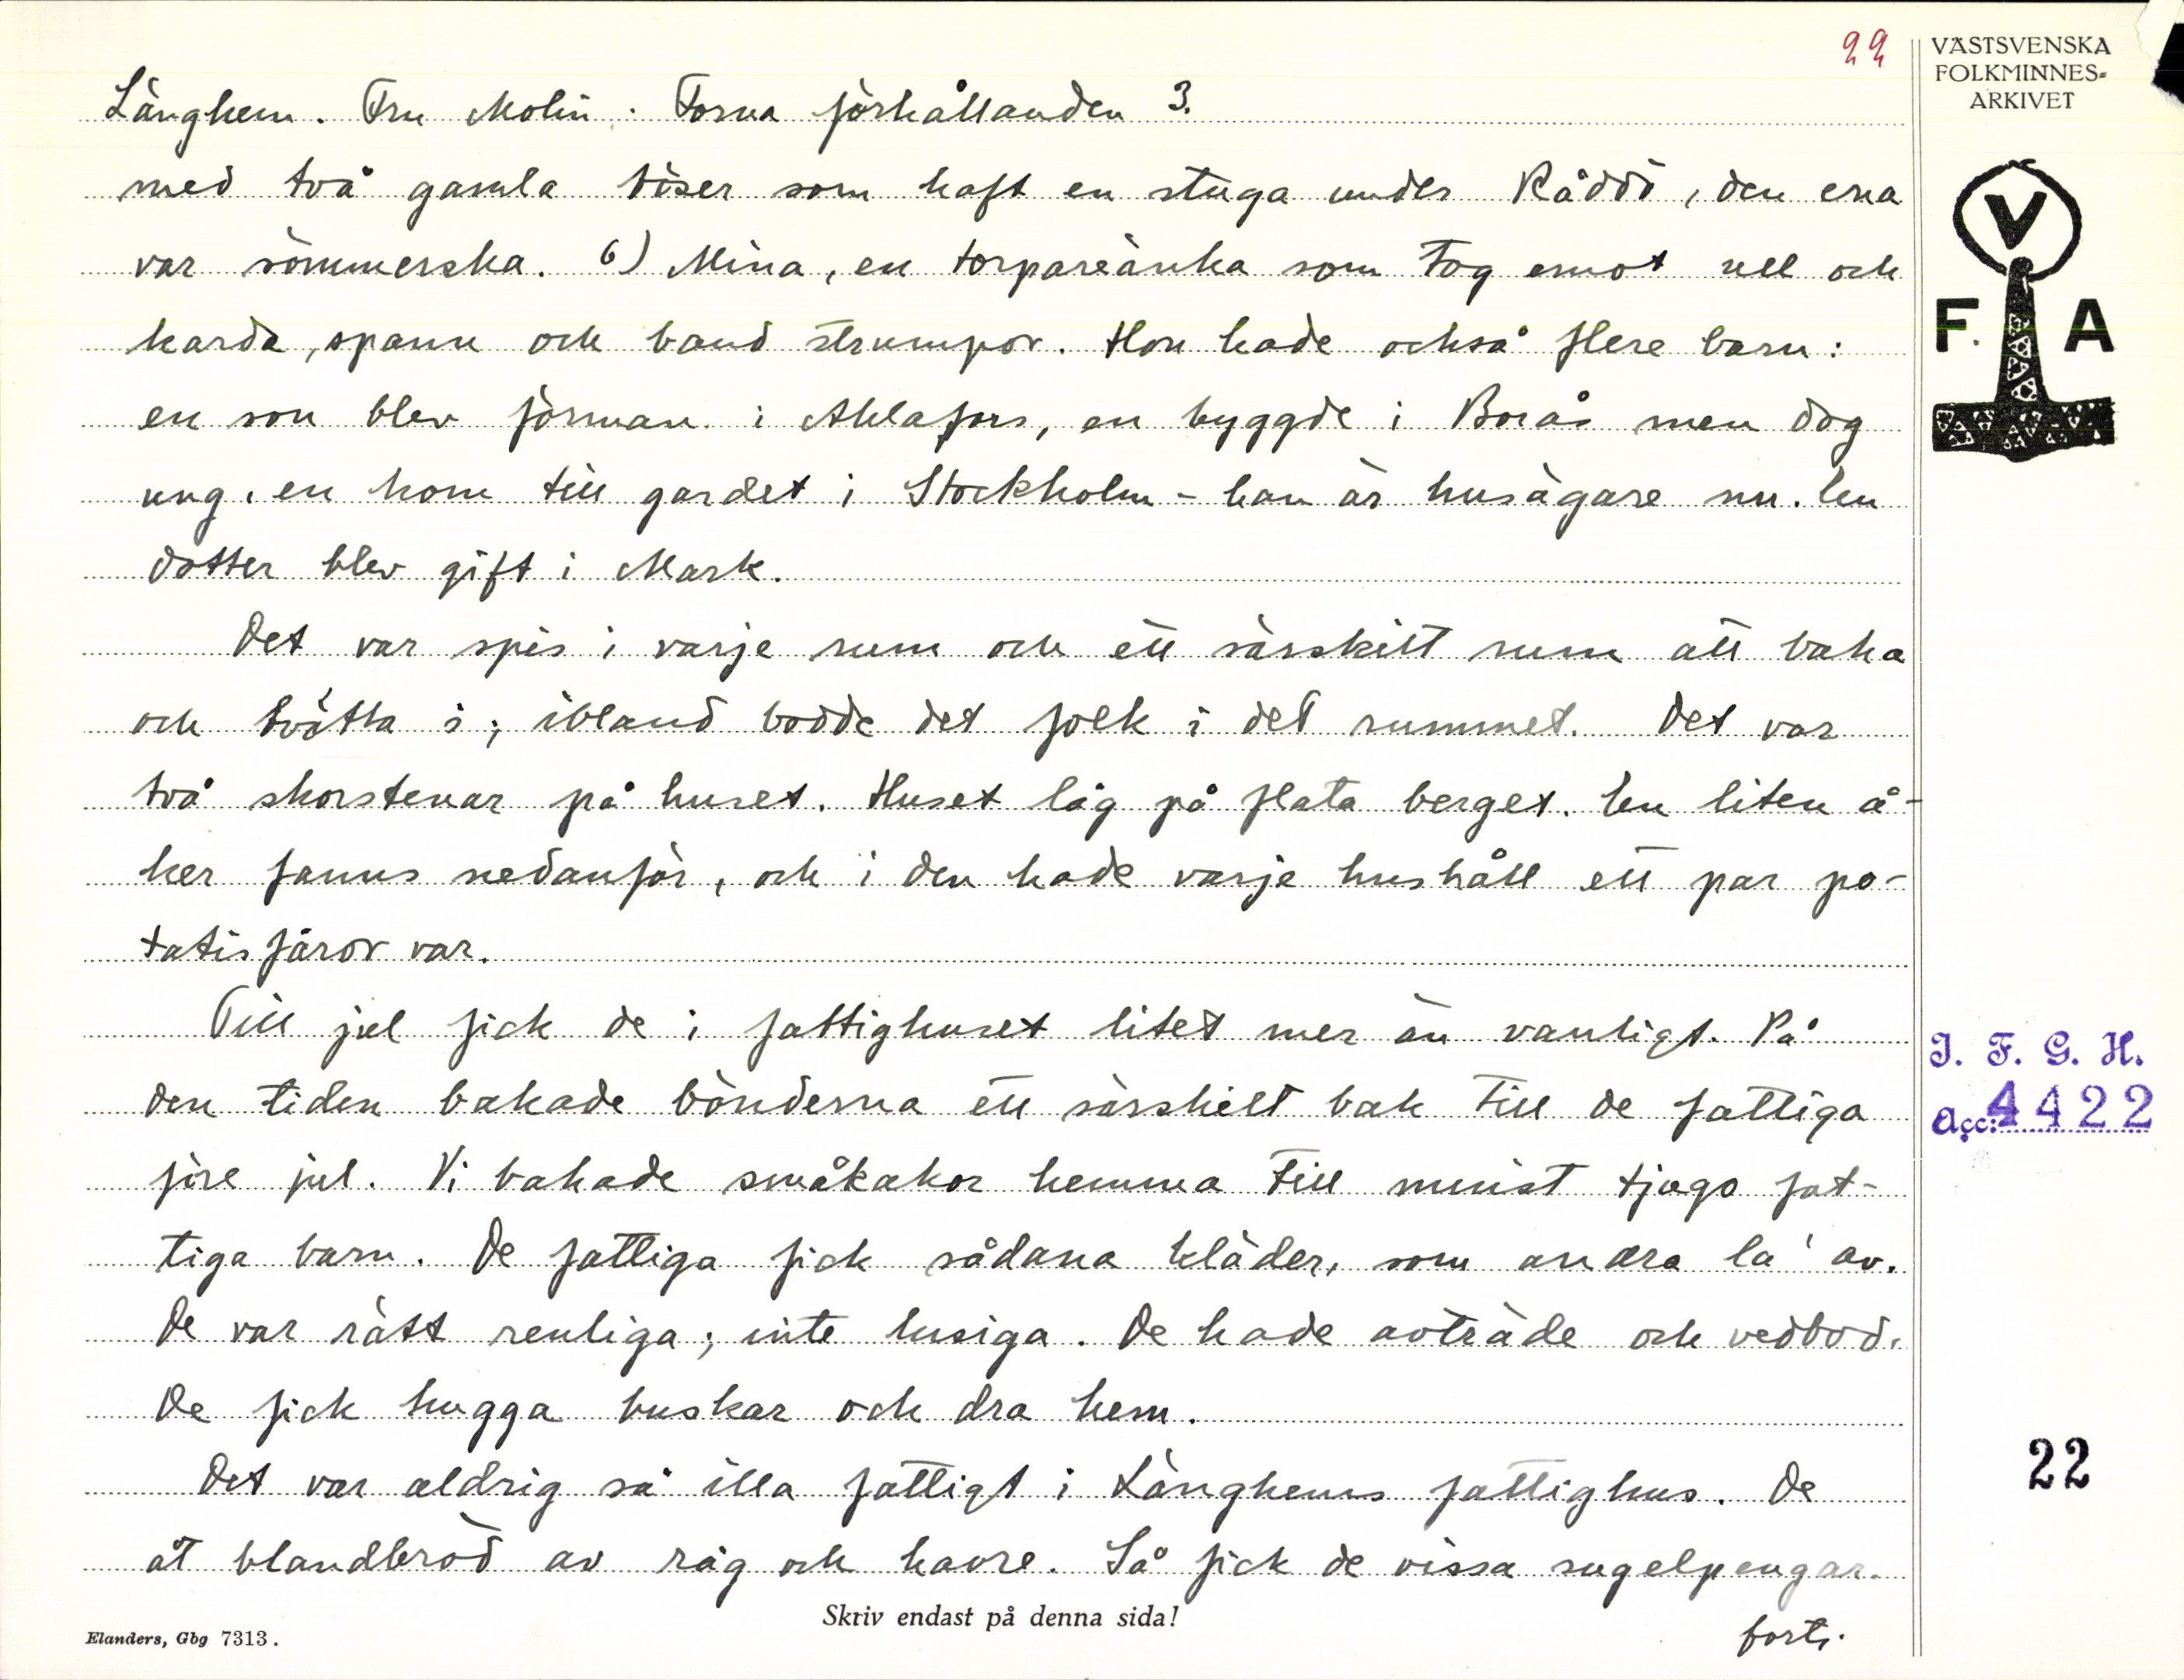 22
VÄSTSVENSKA
FOLKMINNES-
ARKIVET
Länghem. Fru Molin. Forna förhållanden 3.
med två gamla töser som haft en stuga under Råddö, den ena
var sömmerska. 6) Mina, en torpareänka som tog emot ull och
karda, spann och band strumpor. Hon hade också flere barn:
en son blev förman i Ahlafors, en byggde i Borås men dog
ung, en kom till gardet i Stockholm - han är husägare nu. En
dotter blev gift i Mark.
Det var spis i varje rum och ett särskilt rum att baka
och tvätta i; ibland bodde det folk i det rummet. Det var
två skorstenar på huset. Huset låg på flata berget. En liten å-
ker fanns nedanför, och i den hade varje hushåll ett par po-
tatisfåror var.
Till jul fick de i fattighuset litet mer än vanligt. På
den tiden bakade bönderna ett särskilt bak till de fattiga
före jul. Vi bakade småkakor hemma till minst tjugo fat-
tiga barn. De fattiga fick sådana kläder, som andra la' av.
De var rätt renliga; inte lusiga. De hade avträde och vedbod.
De fick hugga buskar och dra hem.
Det var aldrig så illa fattigt i Länghems fattighus. De
åt blandbröd av råg och havre. Så fick de vissa sugelpengar.
forts.
Skriv endast på denna sida!
Elanders, Gbg 7313.
V
F. A
I. F. G. H.
Acc: 4422
22